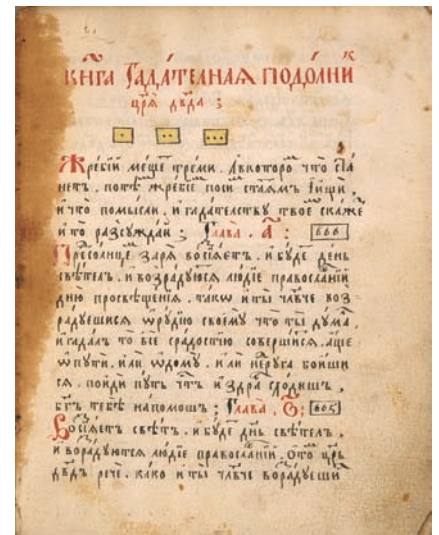 книга гадателная подолник
цр҃я дв҃да ;
Жребїи мещѐ треми . Авкоторо что ста
нетъ . потѣ жребїе
и что помысли . и гадателству твое скаже
и то разсуждаи ; Глава . А : 666
Пресолнце заря восїяетъ . и буде день
свѣтелъ . и возрадуюся людїе православнїи
дню просвѣщенїя . такѡ и ты чл҃вче воз
радуешися ѡрудїю своему что ты дума .
и гадалъ то все срадостїю совершися . аще
ѡпути . или ѡдому . или боиши
ся . поиди путь и здра сходишъ .
бг҃ъ тебѣ напомощъ ; Глава . В : 665
Восїяетъ свѣтъ . и буде дн҃ь свѣтелъ .
и ворадуются людїе православнїи . цр҃ь
дв҃дъ рече . како и ты чл҃вче ворадуеши